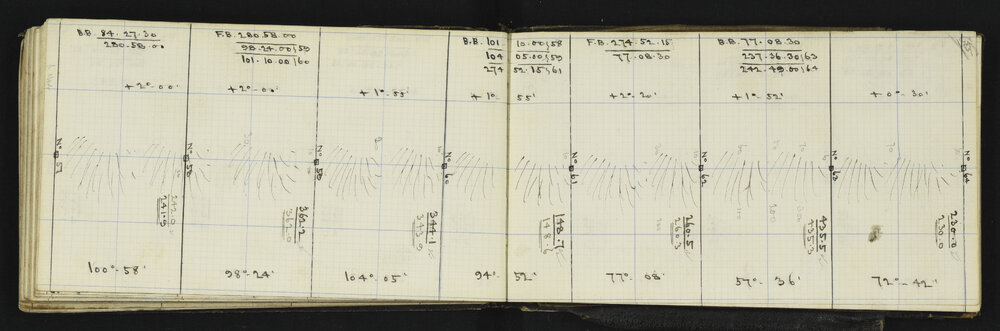 B.B. 84.27.30
280.58.00
F.B. 280.58.00
98.24.00/59
101.10.00/60
B.B. 101 10.00/58
104 05.00/59
274 52.15/61
F.B. 274.52.15
77.08.30
B.B. 77.08.30
237.36.30/63
242.49.00/64
+2°-00'
+2°-00'
+1°-55'
+1°- 55'
+2°-20'
+1°-52'
+0°-30'
No 57
No 58
No 59
No 60
No 61
No 62
No 63
No 64
242.0
241.9
362.2
362.0
344.1
343.9
148.7
148.6
260.5
260.3
435.5
435.3
230.0
230.0
100°-58'
98°-24'
104°-05'
94°- 52'
77°- 08'
57°- 36'
72°-42'